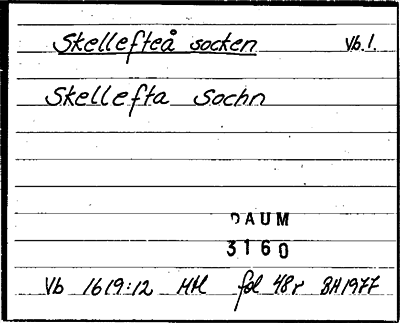 Skellefteå socken Vb. l.
Skellefta Sochn
DAUM
3160
Vb 1619:12 HH fol 48r BH 1977